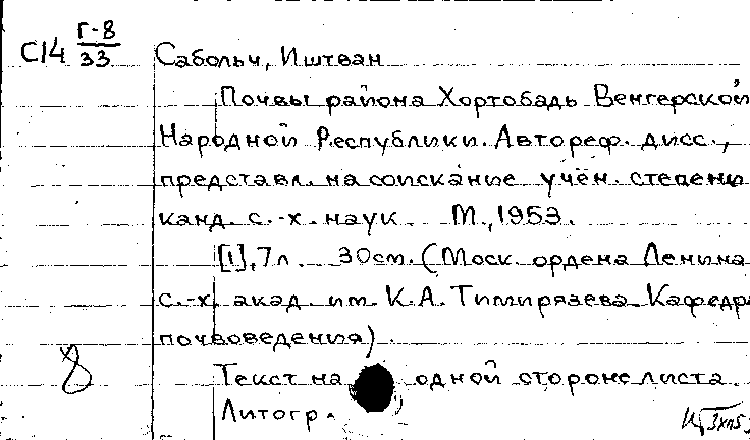 С14 Г-8/33
Сабольч, Иштван
Почвы района Хортобадь Венгерской
Народной Республики. Автореф. дисс.,
представл. на соискание учён. степени
канд. с.-х. наук. М., 1953.
[1], 7 л. 30 см. (Моск. ордена Ленина
с.-х. акад. им. К.А. Тимирязева. Кафедра
почвоведения).
8 Текст на одной стороне листа.
Литогр.